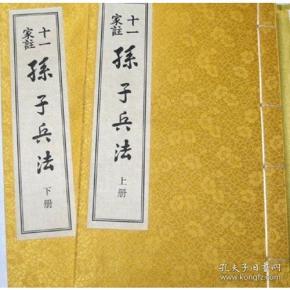 十一
家註
孫子兵法
下册
十一
家註
孫子兵法
上册
孔夫子旧书网